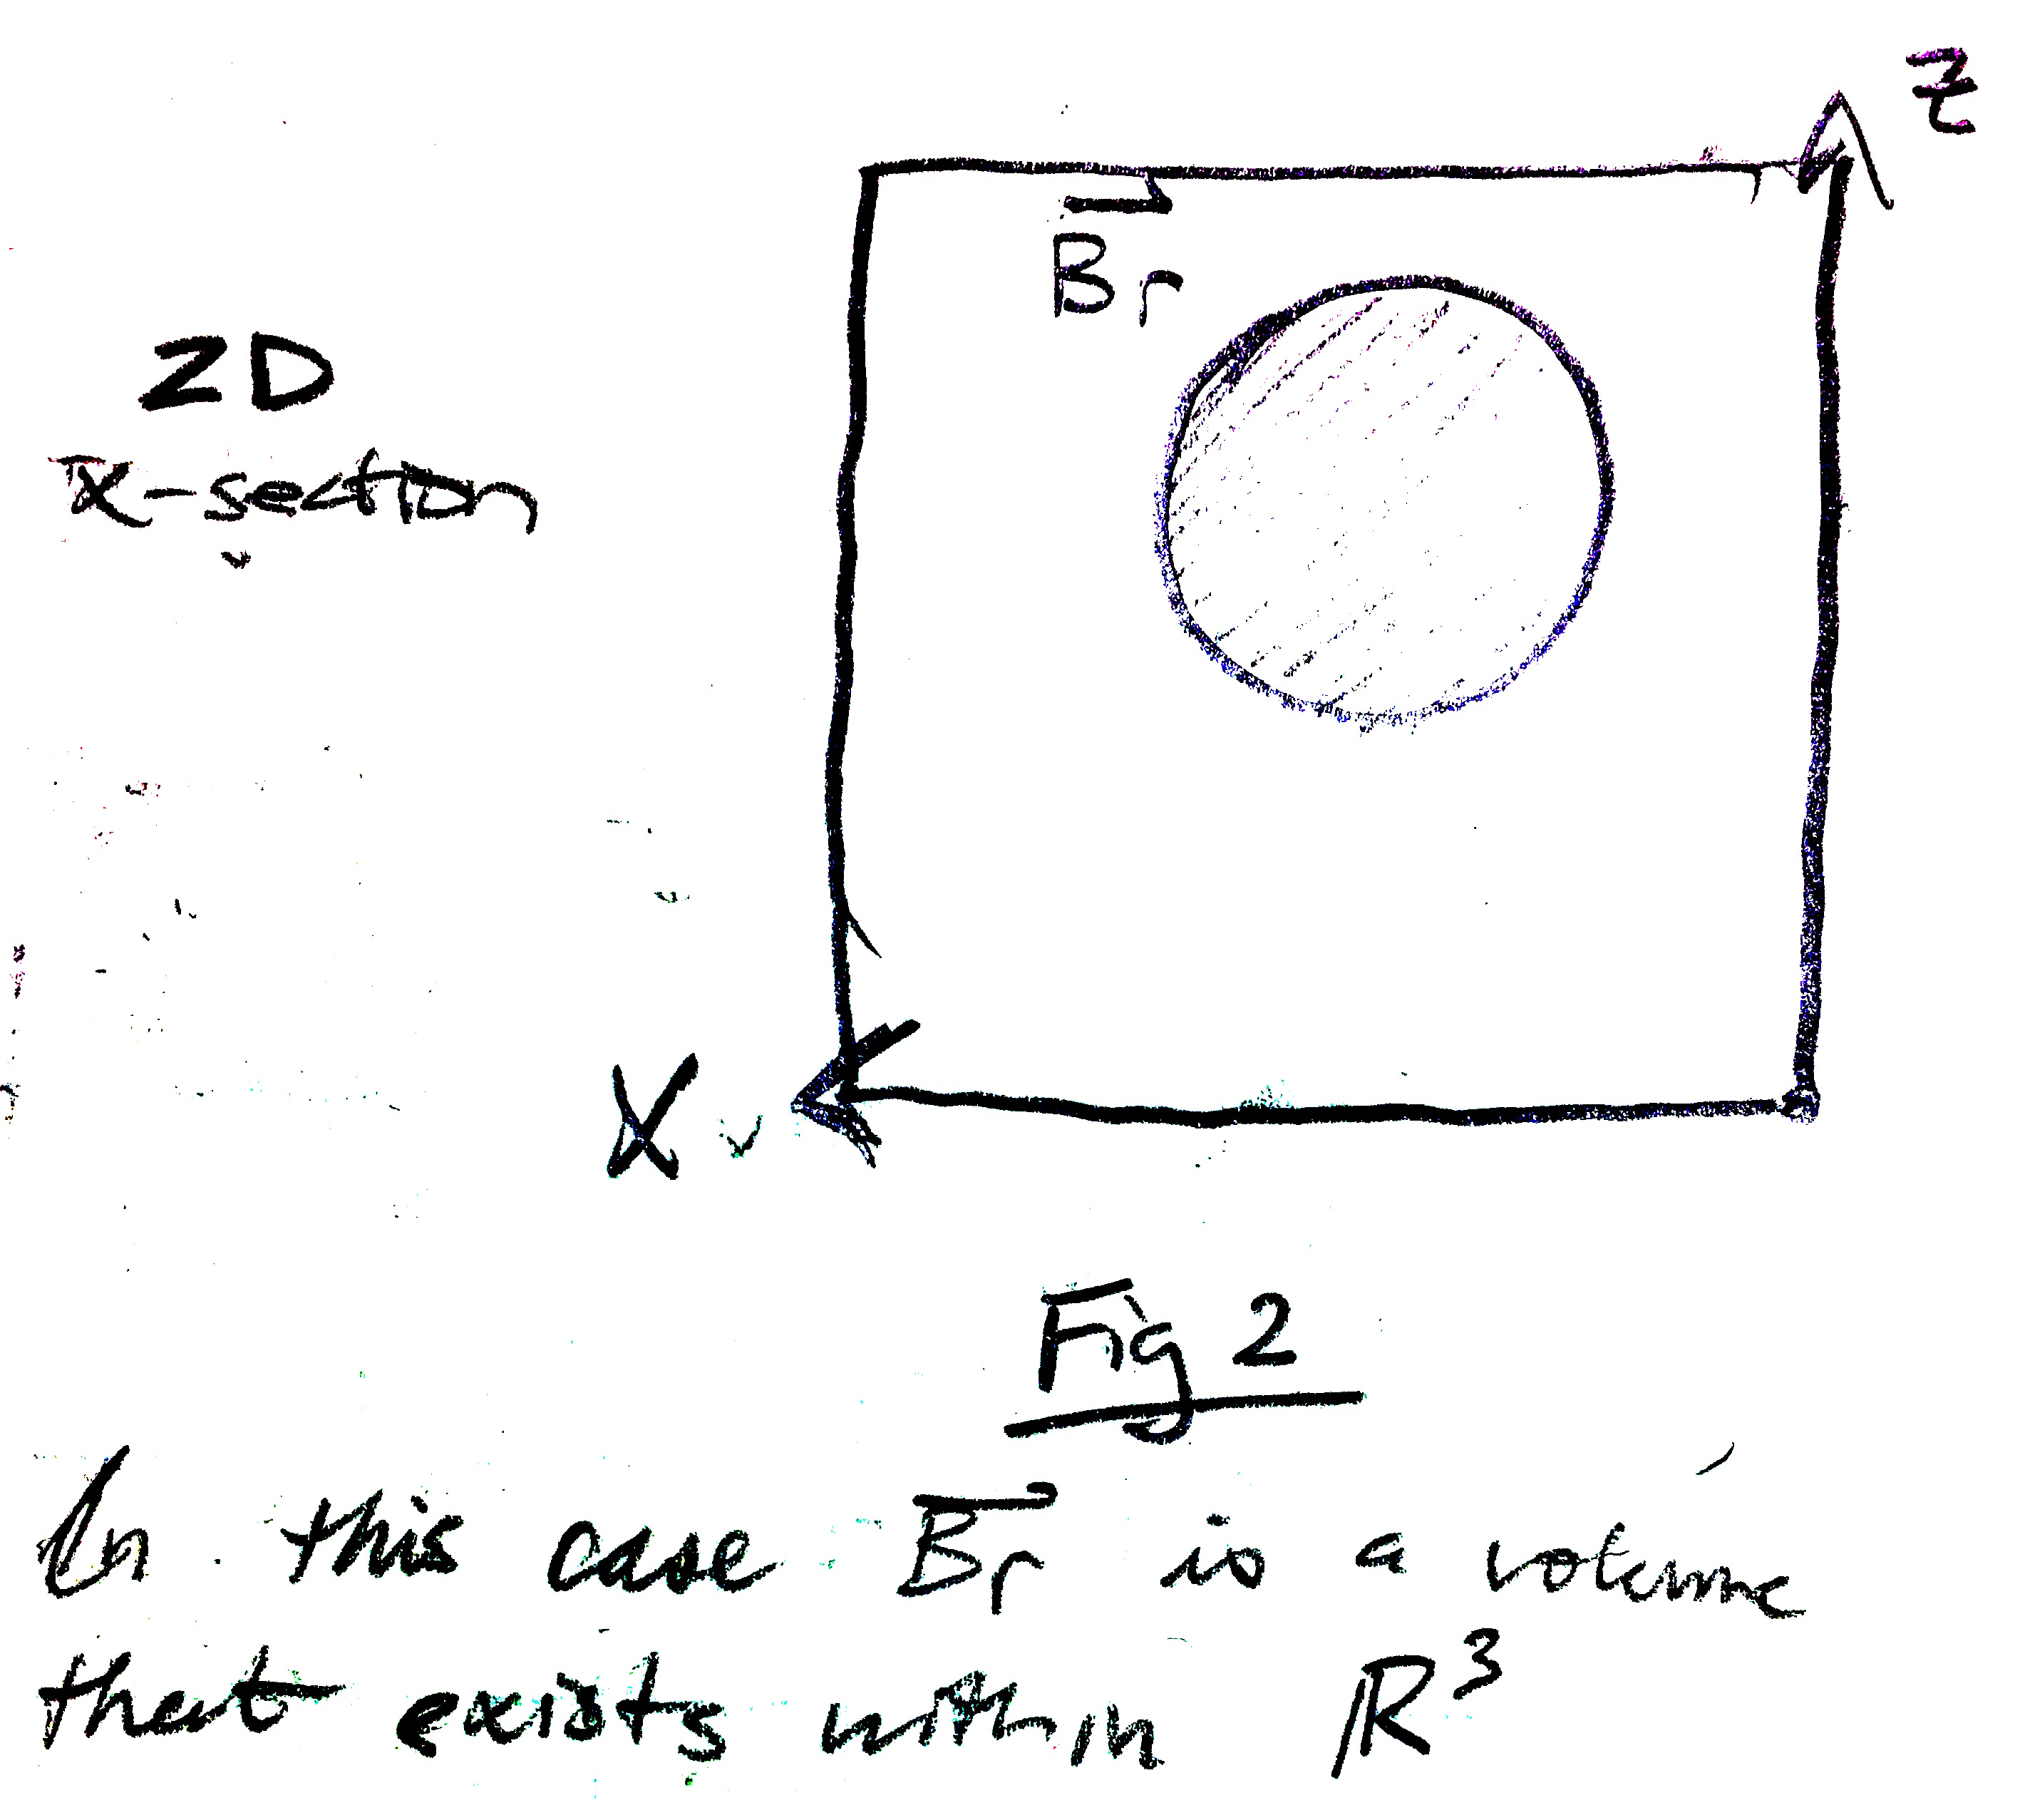 Z
B⃗r
2D
x-section
X
Fig 2
In this case B⃗r is a volume
that exists within ℝ³